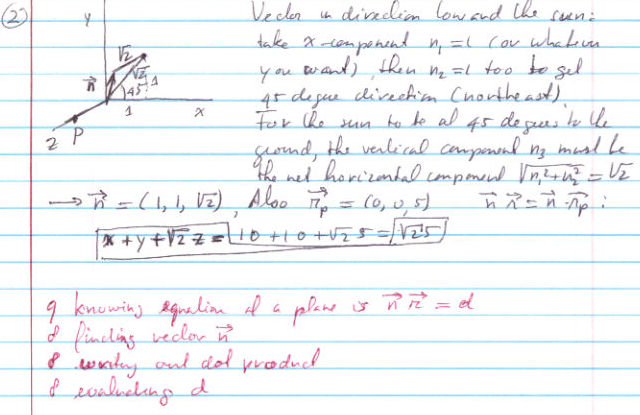 ② Vector in direction toward the sun:
take x-component n₁ = 1 (or whatever
you want), then n₂ = 1 too to get
45 degree direction (northeast).
For the sun to be at 45 degrees to the
ground, the vertical component n₃ must be
the net horizontal component √n₁²+n₂² = √2
→ n⃗ = (1, 1, √2), Also r⃗ₚ = (0, 0, 5) n⃗ r⃗ = n⃗ · r⃗ₚ :
x + y + √2 z = 1 0 + 1 0 + √2 5 = √2 5
y
√2
√2
n⃗
45°
1
1
x
z
P
9 knowing equation of a plane is n⃗ r⃗ = d
8 finding vector n⃗
8 writing out dot product
8 evaluating d